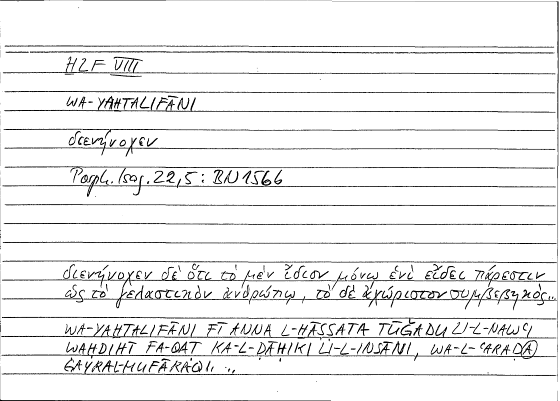 HLF VIII
WA-YAHTALIFĀNI
διενήνοχεν
Porph. Isag. 22,5 : BN 1566
διενήνοχεν δὲ ὅτι τὸ μὲν ἴδιον μόνῳ ἑνὶ εἴδει πάρεστιν
ὡς τὸ γελαστικὸν ἀνθρώπῳ, τὸ δὲ ἀχώριστον συμβεβηκός...
WA-YAHTALIFĀNI FĪ ANNA L-HĀSSATA TŪĞADU LI-L-NAWʿI
WAHDIHĪ FA-QAT KA-L-DĀHIKI LI-L-INSĀNI, WA-L-ʿARADA
ĠAYRA L-MUFĀRAQI...